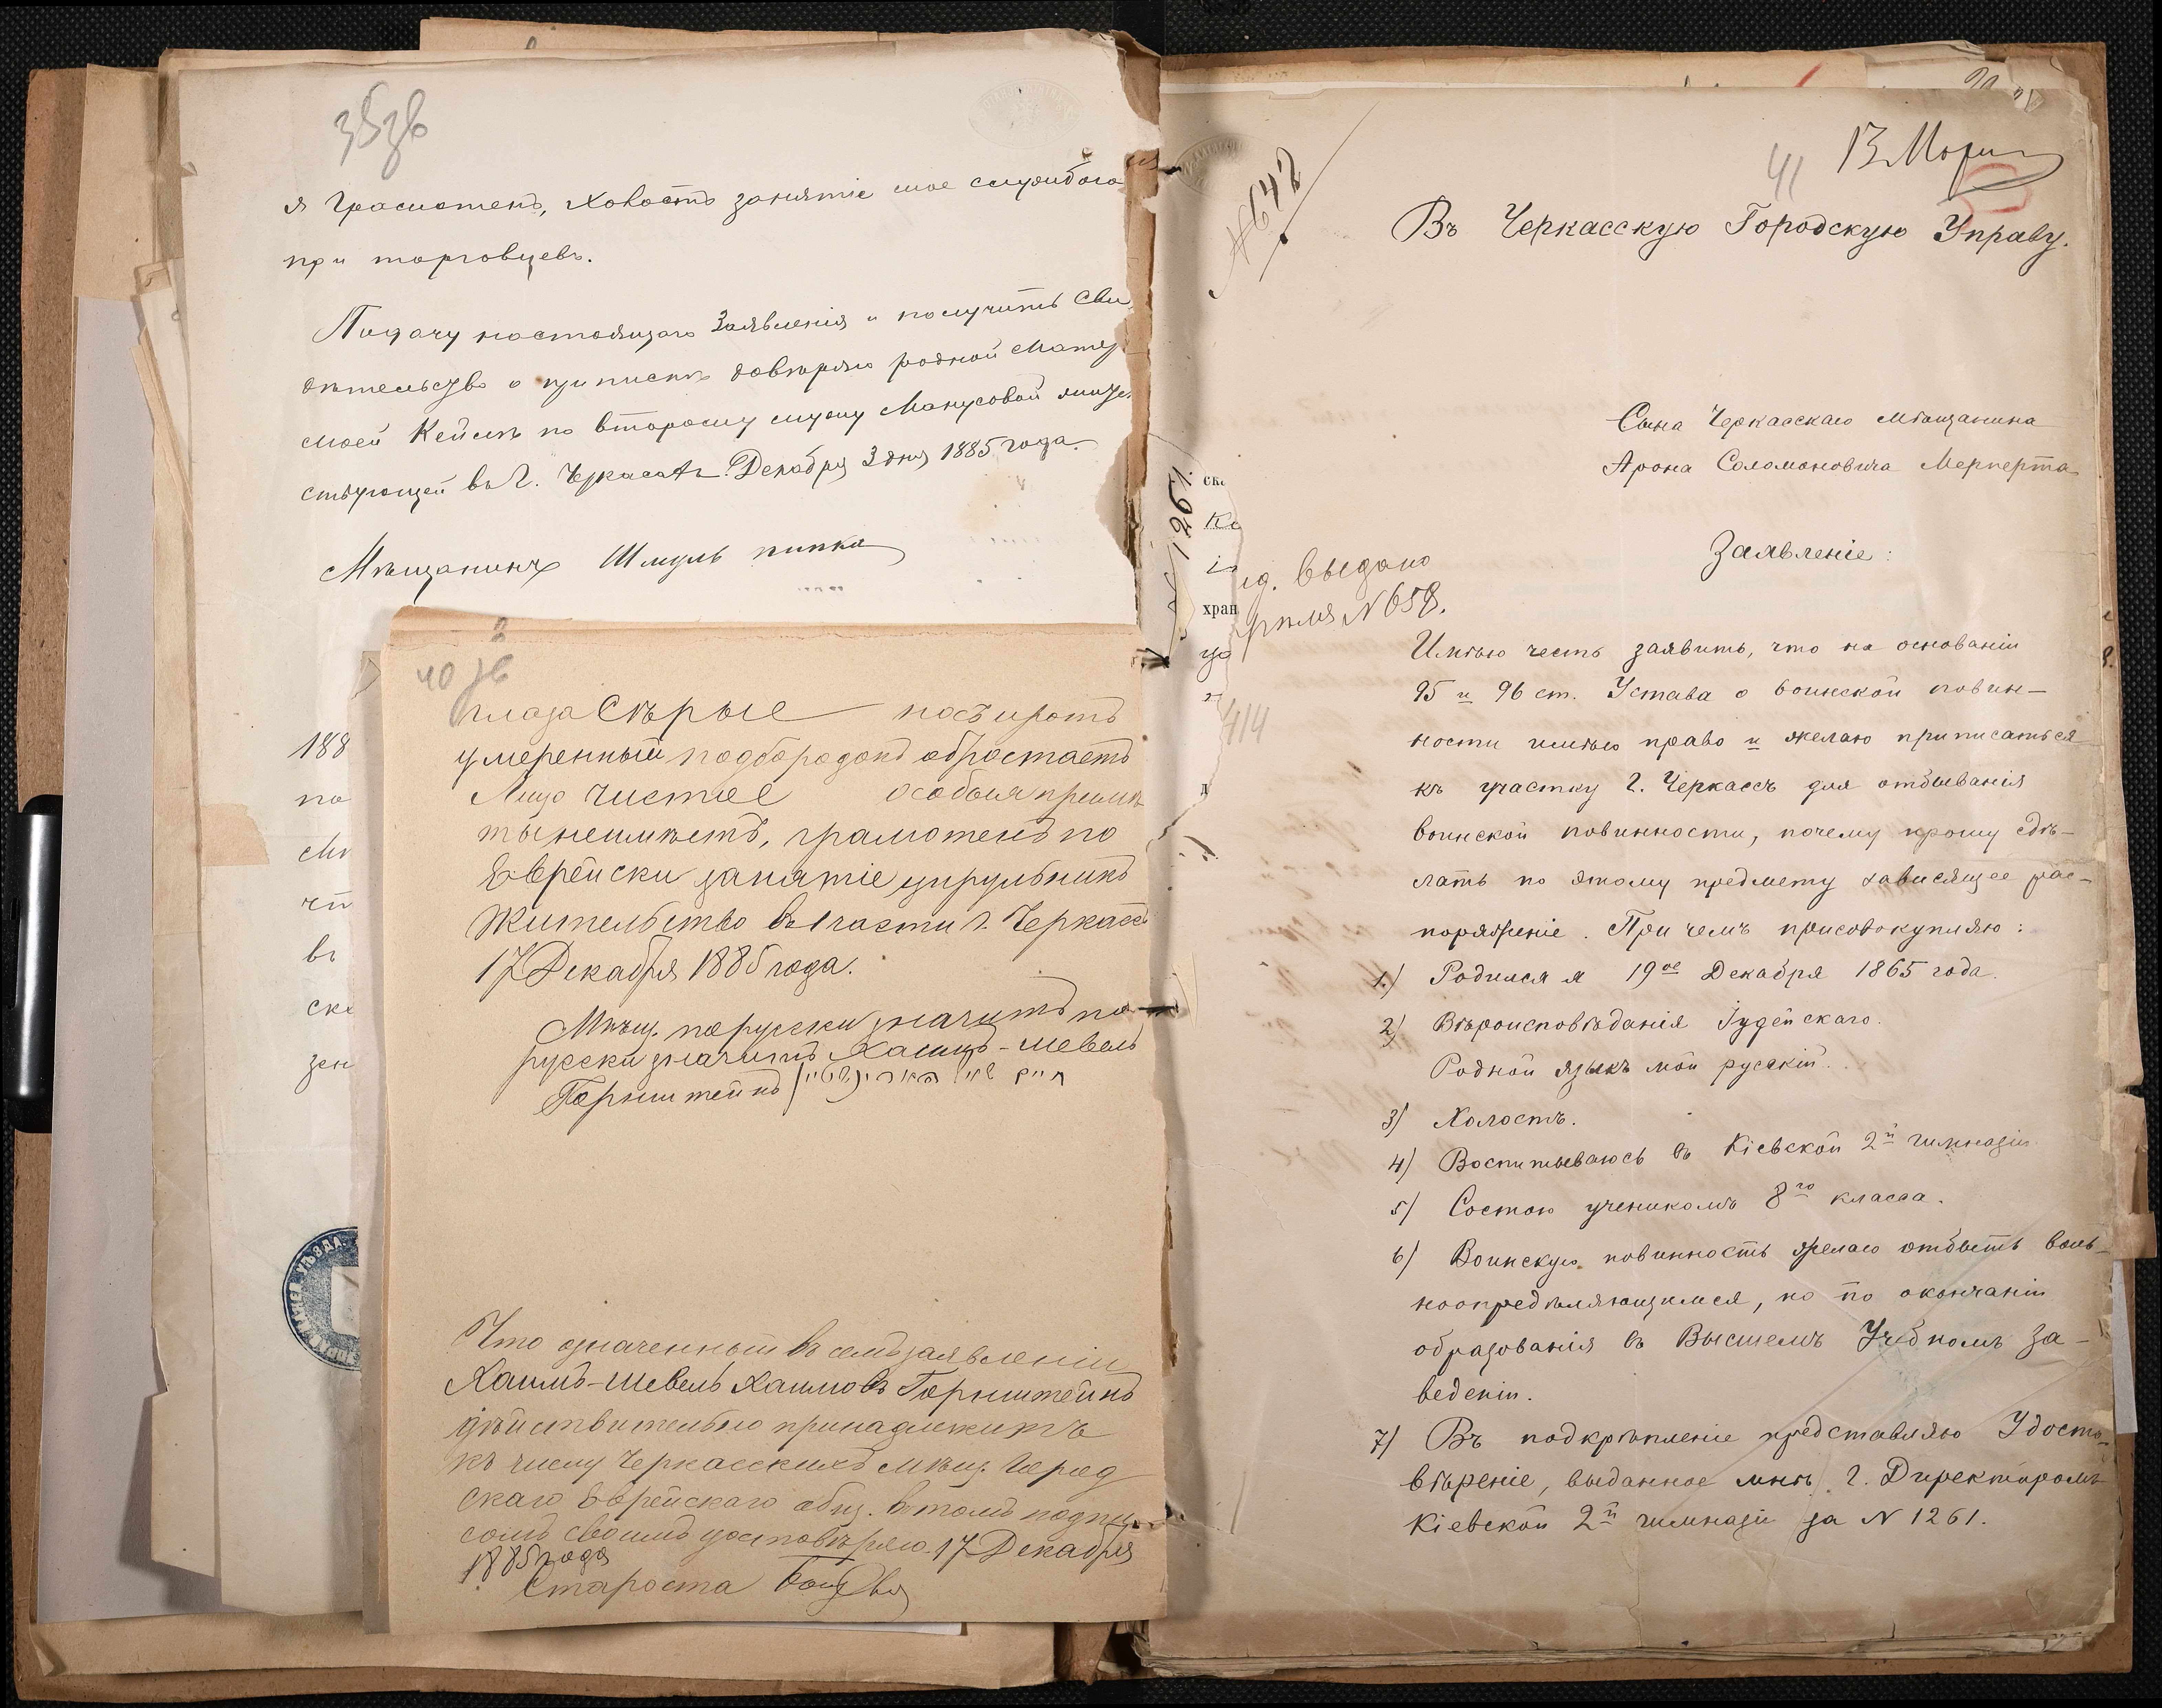 35 зв
я Грамотенъ, Холостъ занятіе мое службою
при торговцевъ.
Подачу настоящаго Заявленія и получить Сви
дѣтельство о припискѣ довѣряю родной Матер
моей Кейлѣ по второму мужу Манусовой жите
ствующей въ Г. Черкасахъ. Декабря 3 дня 1885 года.
Мѣщанинъ Шмуль пипка
188
по
чи
въ
ска
зен
УѢЗДА.
40 зв
глаза Сѣрые носъ и ротъ
умеренный подбородокъ обростаетъ
Лицо чистое особыя примѣ
ты неимѣетъ, грамотенъ по
Еврейски занятіе цирульникъ
Жительство въ 1 части г. Черкасъ
17 Декабря 1885 года.
Мѣщ. порусски значитъ по
русски значитъ Хаимъ-Шевель
Горнштейнъ
Что означенный въ семъ заявленіи
Хаимъ-Шевель Хаимовъ Горнштейнъ
дѣйствительно принадлежитъ
къ числу Черкасскихъ мѣщ. Город
скаго Еврейскаго общ. въ томъ подпи
сомъ своимъ удостовѣряю 17 Декабря
1885 года
Староста
№ 642
41
Въ Черкасскую Городскую Управу.
Сына Черкасскаго мѣщанина
Арона Соломоновича Мерперта
Заявленіе:
1261.
ска
хран
выдано
N 658.
414
Имѣю честь заявить, что на основаніи
95 и 96 ст. Устава о воинской повин-
ности имѣю право и желаю приписаться
къ участку г. Черкассъ для отбыванія
воинской повинности, почему прошу сдѣ-
лать по этому предмету зависящее рас-
поряженіе. При чемъ присовокупляю:
1.) Родился я 19ое Декабря 1865 года.
2) Вѣроисповѣданія Іудейскаго.
Родной языкъ мой русскій.
3) Холостъ.
4) Воспитываюсь въ Кіевской 2й гимназіи
5) Состою ученикомъ 8го класса.
6) Воинскую повинность желаю отбыть воль-
ноопредѣляющимся, но по окончаніи
образованія въ Высшемъ Учебномъ За-
веденіи.
7) Въ подкрѣпленіе представляю Удосто-
вѣреніе, выданное мнѣ г. Директоромъ
Кіевской 2й гимназіи за N 1261.